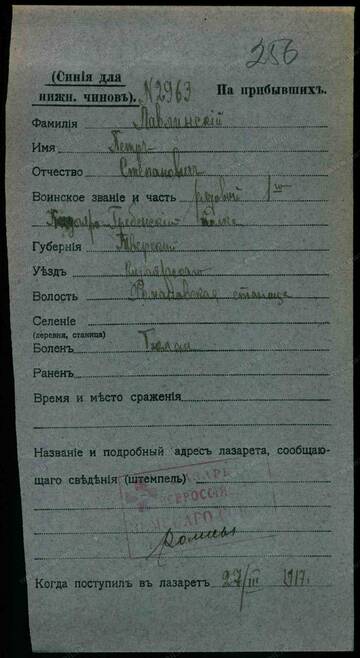 256
(Синія для
нижн. чиновъ). №2963 На прибывшихъ.
Фамилія Павлинскій
Имя Петръ
Отчество Степановичъ
Воинское званіе и часть рядовой 1го
Гребенскій полка
Губернія
Уѣздъ
Волость Романовская станица
Селеніе
(деревня, станица)
Боленъ
Раненъ
Время и мѣсто сраженія
Названіе и подробный адресъ лазарета, сообщаю-
щаго свѣдѣнія (штемпель)
ЛАЗАРЕ
ВСЕРОССІЙ
Ромны
Когда поступилъ въ лазаретъ 27/III 1917г.